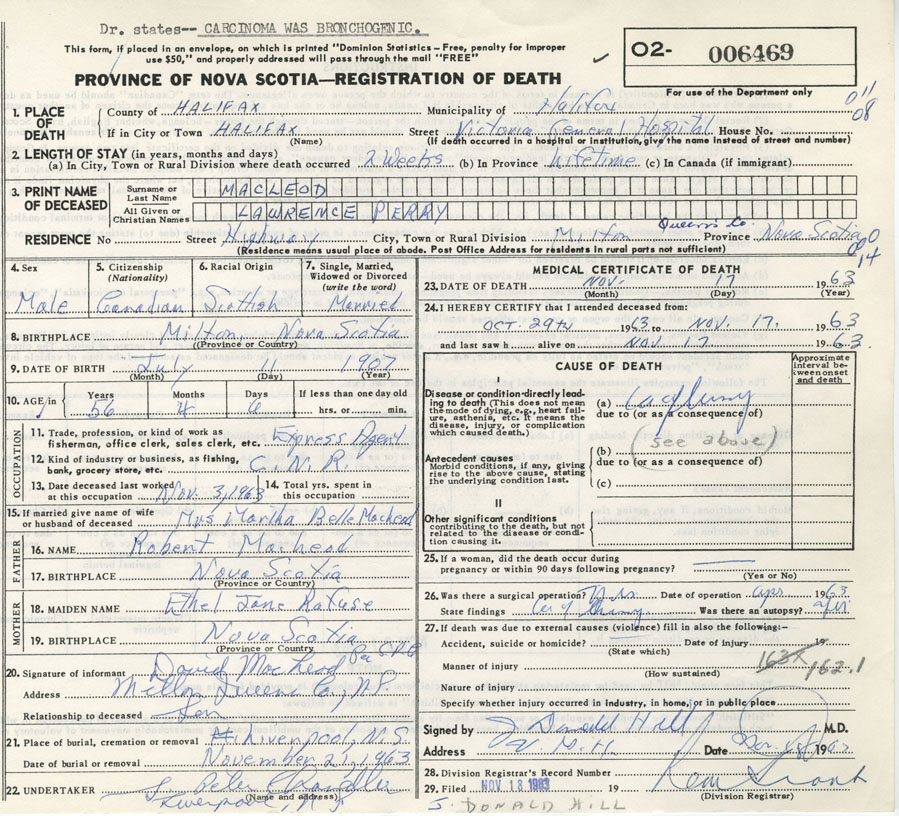 Dr. states-- CARCINOMA WAS BRONCHOGENIC.
This form, if placed in an envelope, on which is printed "Dominion Statistics - Free, penalty for improper
use $50," and properly addressed will pass through the mail "FREE"
PROVINCE OF NOVA SCOTIA—REGISTRATION OF DEATH
O2- 006469
For use of the Department only
011
08
1. PLACE OF DEATH
County of HALIFAX Municipality of Halifax
If in City or Town HALIFAX Street Victoria General Hospital House No.
(Name) (If death occurred in a hospital or institution, give the name instead of street and number)
2. LENGTH OF STAY (in years, months and days)
(a) In City, Town or Rural Division where death occurred 2 Weeks (b) In Province Lifetime (c) In Canada (if immigrant)
3. PRINT NAME OF DECEASED
Surname or Last Name MACLEOD
All Given or Christian Names LAWRENCE PERRY
RESIDENCE No Street Highway City, Town or Rural Division Milton Queens Co. Province Nova Scotia
(Residence means usual place of abode. Post Office Address for residents in rural parts not sufficient)
14
4. Sex Male
5. Citizenship (Nationality) Canadian
6. Racial Origin Scottish
7. Single, Married, Widowed or Divorced (write the word) Married
8. BIRTHPLACE Milton, Nova Scotia
(Province or Country)
9. DATE OF BIRTH July 11 1907
(Month) (Day) (Year)
10. AGE in Years 56 Months 4 Days 6 If less than one day old
hrs. or min.
OCCUPATION
11. Trade, profession, or kind of work as
fisherman, office clerk, sales clerk, etc. Express Agent
12. Kind of industry or business, as fishing,
bank, grocery store, etc. C.N.R.
13. Date deceased last worked
at this occupation Nov. 3, 1963
14. Total yrs. spent in
this occupation
15. If married give name of wife
or husband of deceased Mrs Martha Belle Macleod
FATHER
16. NAME Robert Macleod
17. BIRTHPLACE Nova Scotia
(Province or Country)
MOTHER
18. MAIDEN NAME Ethel Jane Rafuse
19. BIRTHPLACE Nova Scotia
(Province or Country)
20. Signature of informant David MacLeod
Address Milton Queens Co., N.S.
Relationship to deceased Son
21. Place of burial, cremation or removal Liverpool, N.S.
Date of burial or removal November 21, 1963
22. UNDERTAKER
Liverpool, N.S.
(Name and address)
MEDICAL CERTIFICATE OF DEATH
23. DATE OF DEATH NOV. 17 1963
(Month) (Day) (Year)
24. I HEREBY CERTIFY that I attended deceased from:
OCT. 29th 1963 to NOV. 17, 1963
and last saw h alive on NOV. 17 1963.
CAUSE OF DEATH
Approximate interval between onset and death
I
Disease or condition directly leading to death (This does not mean the mode of dying, e.g., heart failure, asthenia, etc. It means the disease, injury, or complication which caused death.)
(a) Ca of lung
due to (or as a consequence of)
(b) (see above)
due to (or as a consequence of)
(c)
Antecedent causes
Morbid conditions, if any, giving rise to the above cause, stating the underlying condition last.
II
Other significant conditions
contributing to the death, but not related to the disease or condition causing it.
25. If a woman, did the death occur during
pregnancy or within 90 days following pregnancy?
(Yes or No)
26. Was there a surgical operation? Date of operation 1963
State findings Was there an autopsy?
27. If death was due to external causes (violence) fill in also the following:—
Accident, suicide or homicide? Date of injury 19
(State which)
Manner of injury 163X 162.1
(How sustained)
Nature of injury
Specify whether injury occurred in industry, in home, or in public place
Signed by J Donald Hill M.D.
Address V. G. H. Date Nov 18 1963
28. Division Registrar's Record Number
29. Filed NOV 18 1963 19
(Division Registrar)
J. DONALD HILL